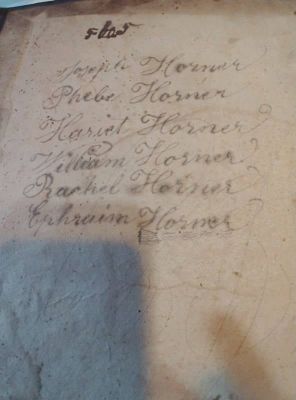 Joseph Horner
Phebe Horner
Hariet Horner
William Horner
Rachel Horner
Ephraim Horner